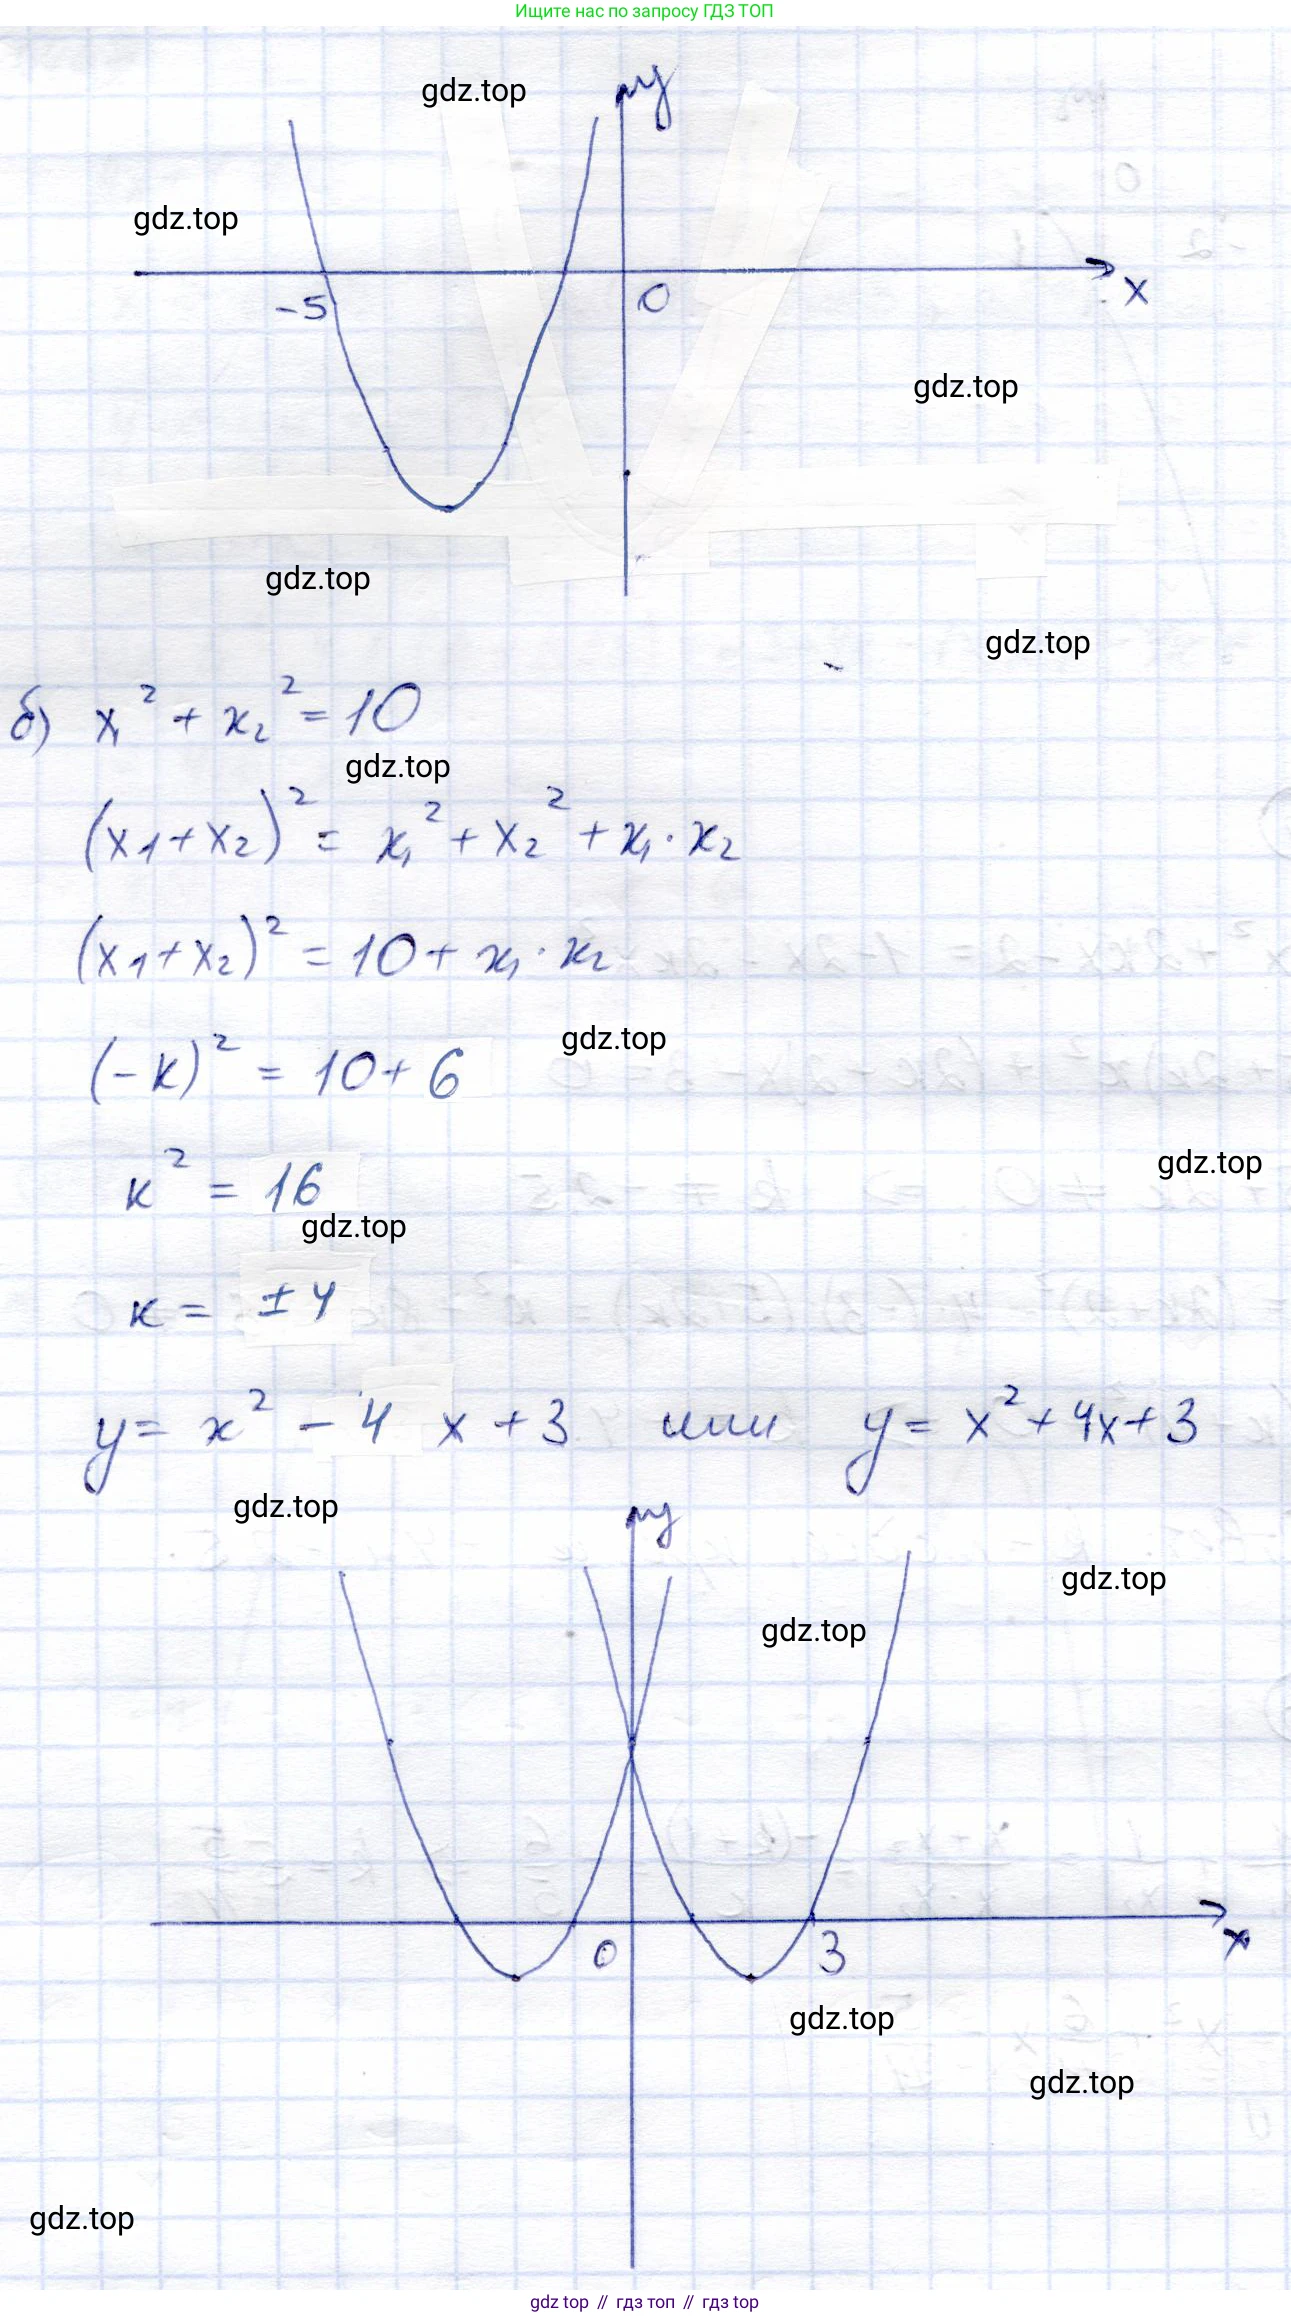 Ищите нас по запросу ГДЗ ТОП
gdz.top
y
gdz.top
-5
0
x
gdz.top
gdz.top
gdz.top
б) x₁² + x₂² = 10
gdz.top
(x₁ + x₂)² = x₁² + x₂² + x₁ · x₂
(x₁ + x₂)² = 10 + x₁ · x₂
gdz.top
(-k)² = 10 + 6
gdz.top
k² = 16
gdz.top
k = ±4
y = x² - 4 x + 3 или y = x² + 4x + 3
gdz.top
y
gdz.top
gdz.top
0
3
x
gdz.top
gdz.top
gdz.top
gdz top // гдз топ // гдз top